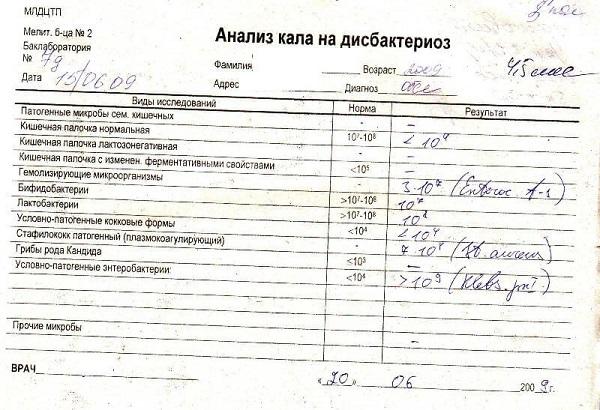 МЛДЦТП
Мелит. б-ца № 2
Баклаборатория
№ 79
Дата 15/06.09
Анализ кала на дисбактериоз
Фамилия Возраст 2009 4,5 мес
Адрес Диагноз
Виды исследований Норма Результат
Патогенные микробы сем. кишечных - -
Кишечная палочка нормальная 10⁷-10⁸ < 10⁴
Кишечная палочка лактозонегативная -
Кишечная палочка с изменен. ферментативными свойствами <10⁵ -
Гемолизирующие микроорганизмы - 3·10⁷ (Enteroc.
Бифидобактерии >10⁷-10⁸ 10⁷
Лактобактерии >10⁷-10⁸
Условно-патогенные кокковые формы <10⁴ < 10⁴
Стафилококк патогенный (плазмокоагулирующий) - (St. aureus)
Грибы рода Кандида <10³ -
Условно-патогенные энтеробактерии: <10⁴ >10⁹ (Klebs.
Прочие микробы
ВРАЧ
« 20 » 06 2009 г.